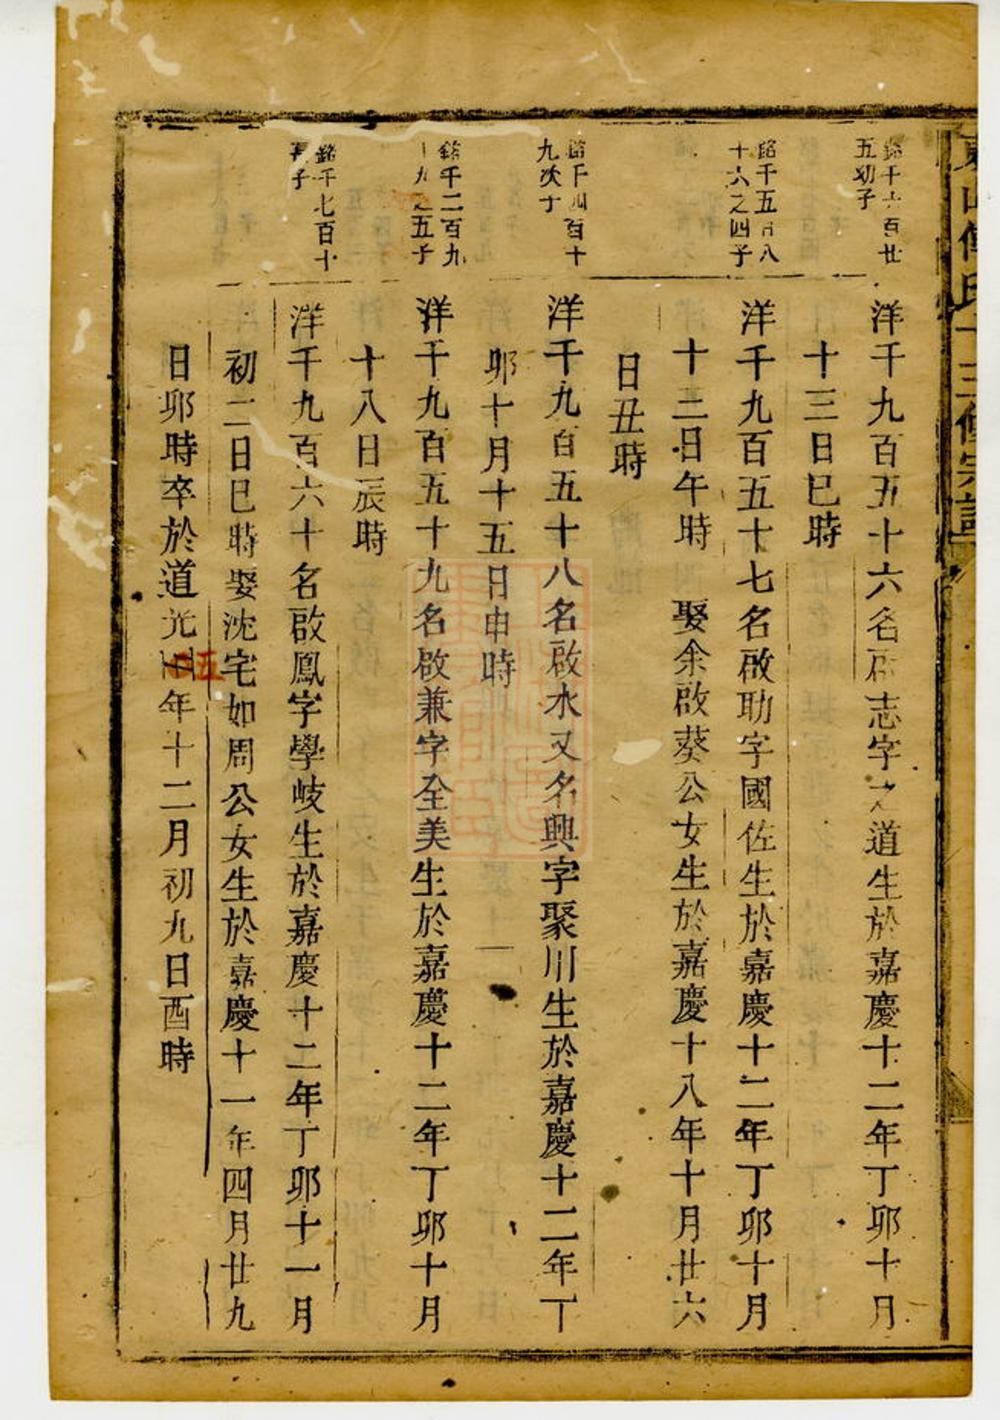 傅氏十三修宗譜
銘千六百廿
五幼子
洋千九百五十六名啟志字之道生於嘉慶十二年丁卯十月
十三日巳時
銘千五百八
十六之四子
洋千九百五十七名啟助字國佐生於嘉慶十二年丁卯十月
十二日午時 娶余啟葵公女生於嘉慶十八年十月廿六
日丑時
銘千四百十
九次子
洋千九百五十八名啟水又名興字聚川生於嘉慶十二年丁
卯十月十五日申時
銘千二百九
十九之五子
洋千九百五十九名啟兼字全美生於嘉慶十二年丁卯十月
十八日辰時
銘千七百十
子
洋千九百六十名啟鳳字學岐生於嘉慶十二年丁卯十一月
初二日巳時娶沈宅如周公女生於嘉慶十一年四月廿九
日卯時卒於道光五年十二月初九日酉時